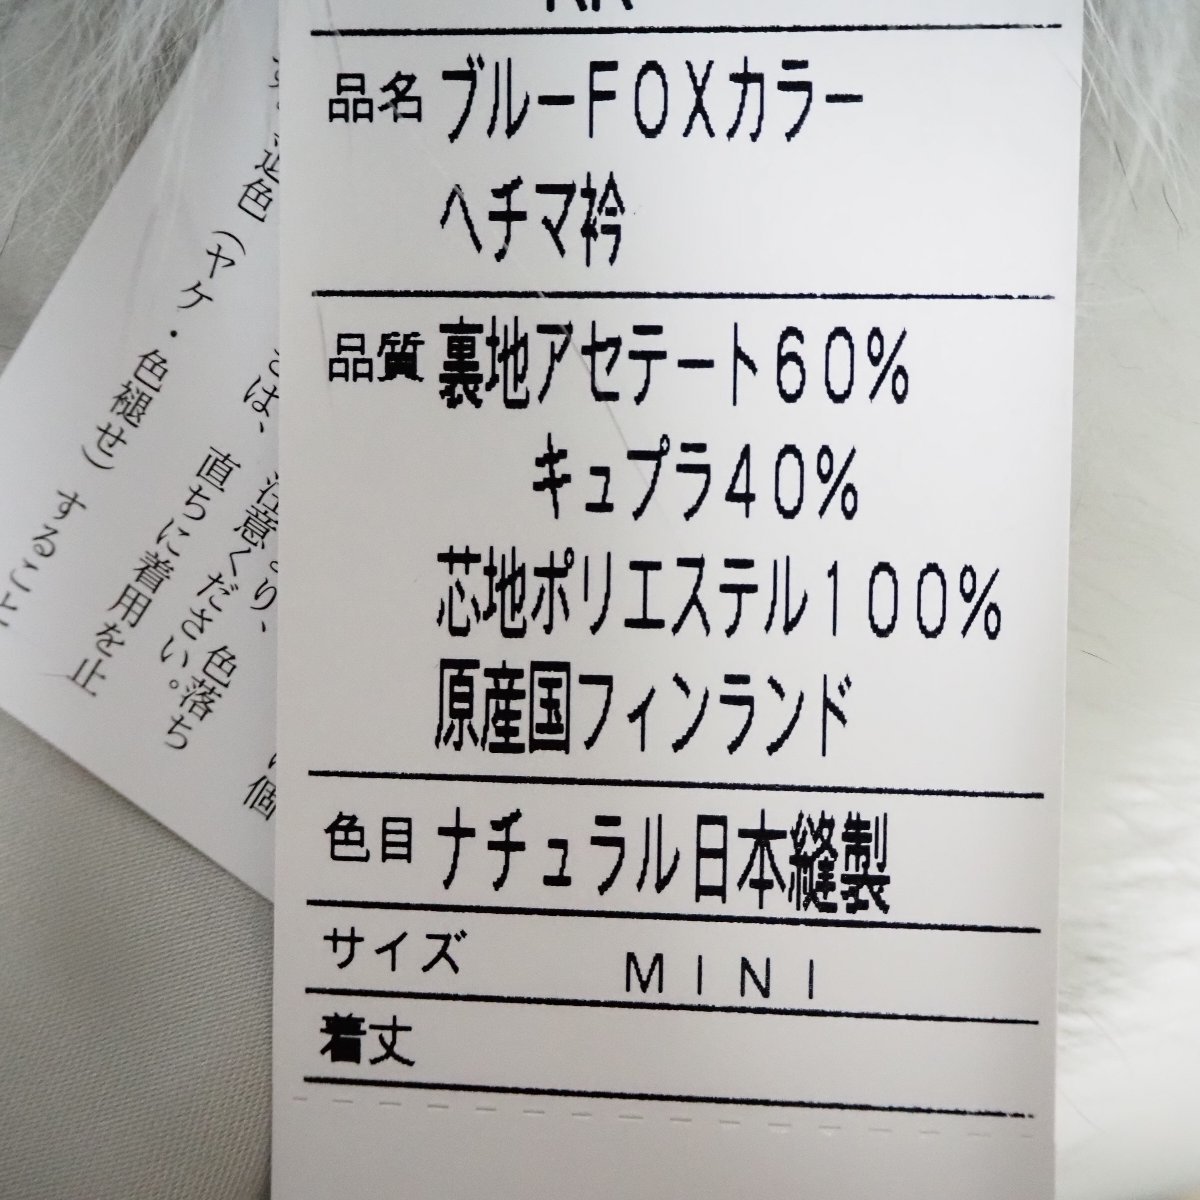 品名 ブルーFOXカラー
ヘチマ衿
品質 裏地アセテート60%
キュプラ40%
芯地ポリエステル100%
原産国フィンランド
色目 ナチュラル日本縫製
サイズ MINI
着丈
色(ヤケ・色褪せ)すること
は、直ちに着用を止
注意ください。
り、色落ち
個